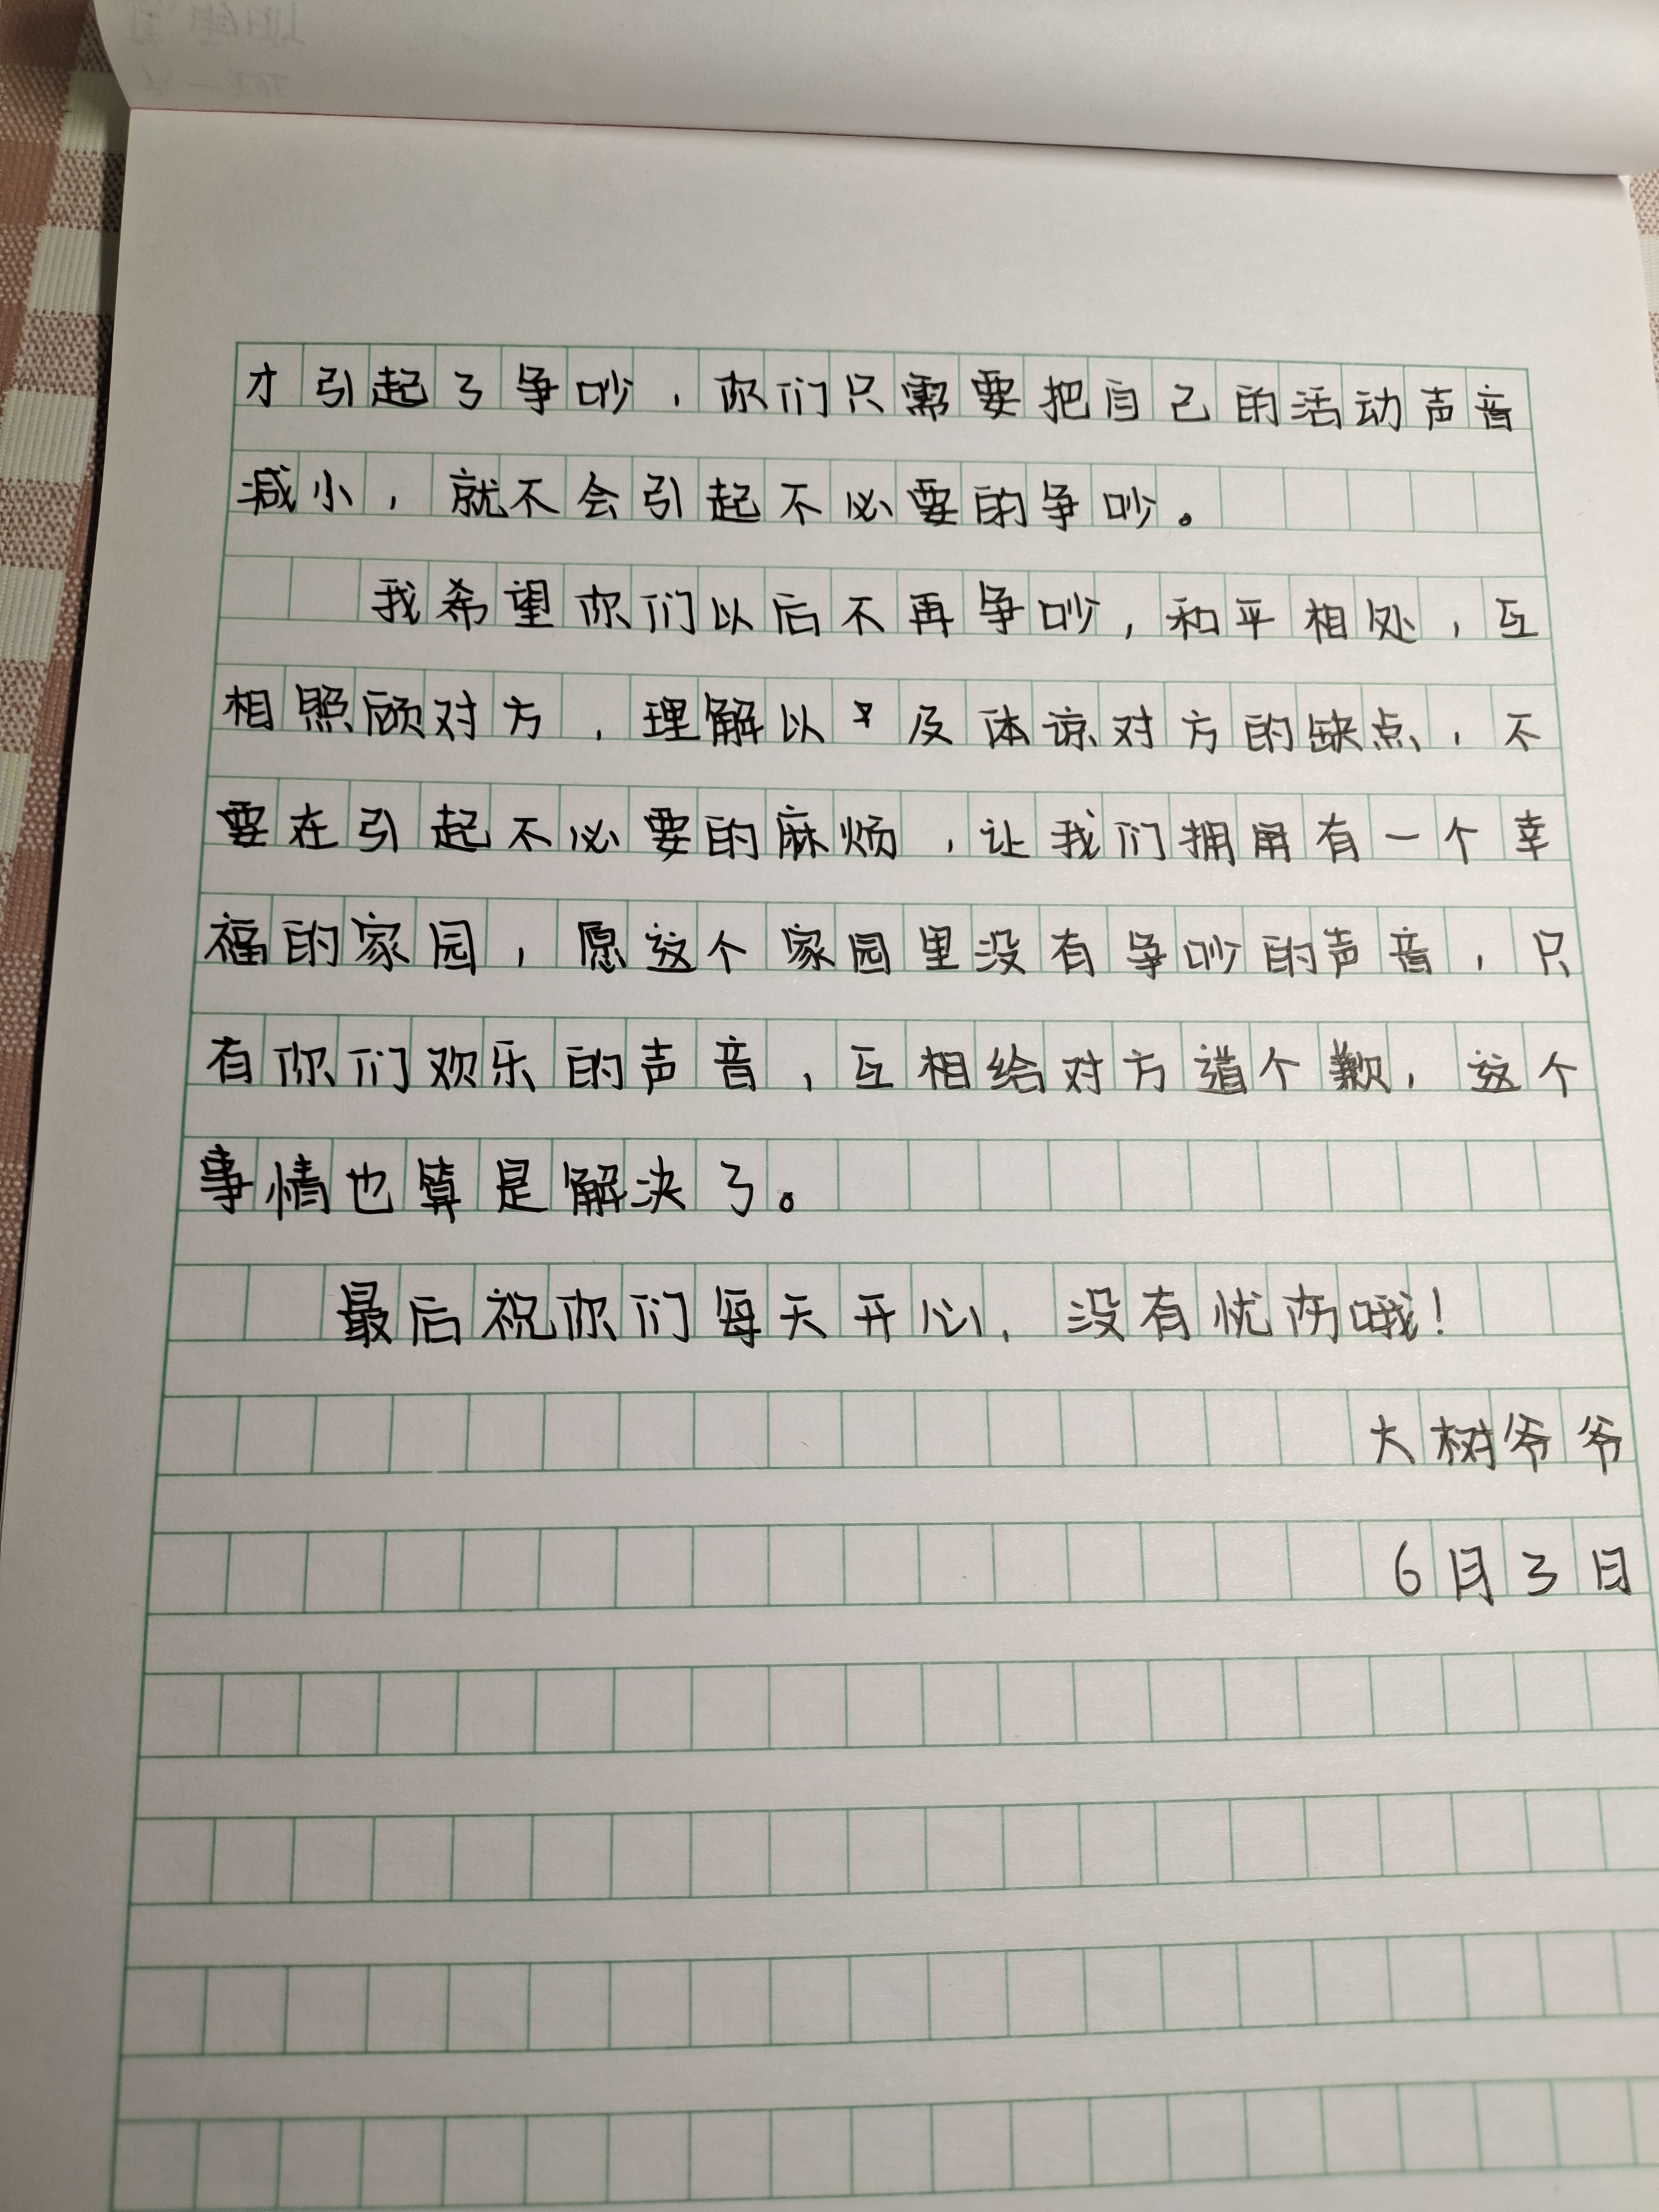 才引起了争吵，你们只需要把自己的活动声音
减小，就不会引起不必要的争吵。
我希望你们以后不再争吵，和平相处，互
相照顾对方，理解以及体谅对方的缺点，不
要在引起不必要的麻烦，让我们拥用有一个幸
福的家园，愿这个家园里没有争吵的声音，只
有你们欢乐的声音，互相给对方道个歉，这个
事情也算是解决了。
最后祝你们每天开心，没有忧伤哦！
大树爷爷
6月3日